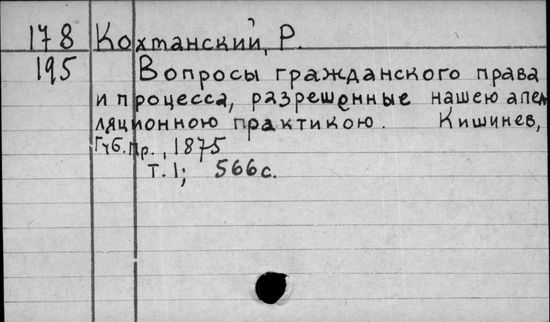 178 Кохтанский, Р.
195 Вопросы гражданского права
и процесса, разрешенные нашею апел
ляционною практикою. Кишинев,
Губ. пр., 1875
т. 1; 566 с.